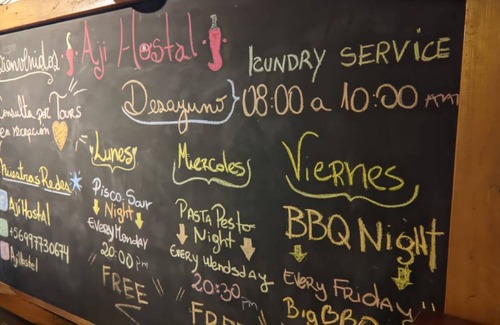 Bienvenidos
Aji Hostal
LAUNDRY SERVICE
Desayuno 08:00 a 10:00 AM
Consulta por Tours
en recepción
Nuestras Redes
AjiHostal
+56997730674
AjiHostel
Lunes
Pisco-Sour
Night
Every Monday
20:00 pm
FREE
Miercoles
PASTA Pesto
Night
Every Wendsday
20:30 pm
FREE
Viernes
BBQ Night
Every Friday
Big BBQ